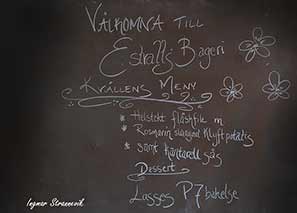 VÄLKOMNA TILL
Estralls Bageri
KVÄLLENS MENY
* Helstekt fläskfile m
* Rosmarin slungad Klyftpotatis
* samt Kantarell sås
Dessert
Lasses P7 bakelse
Ingmar Strannevik